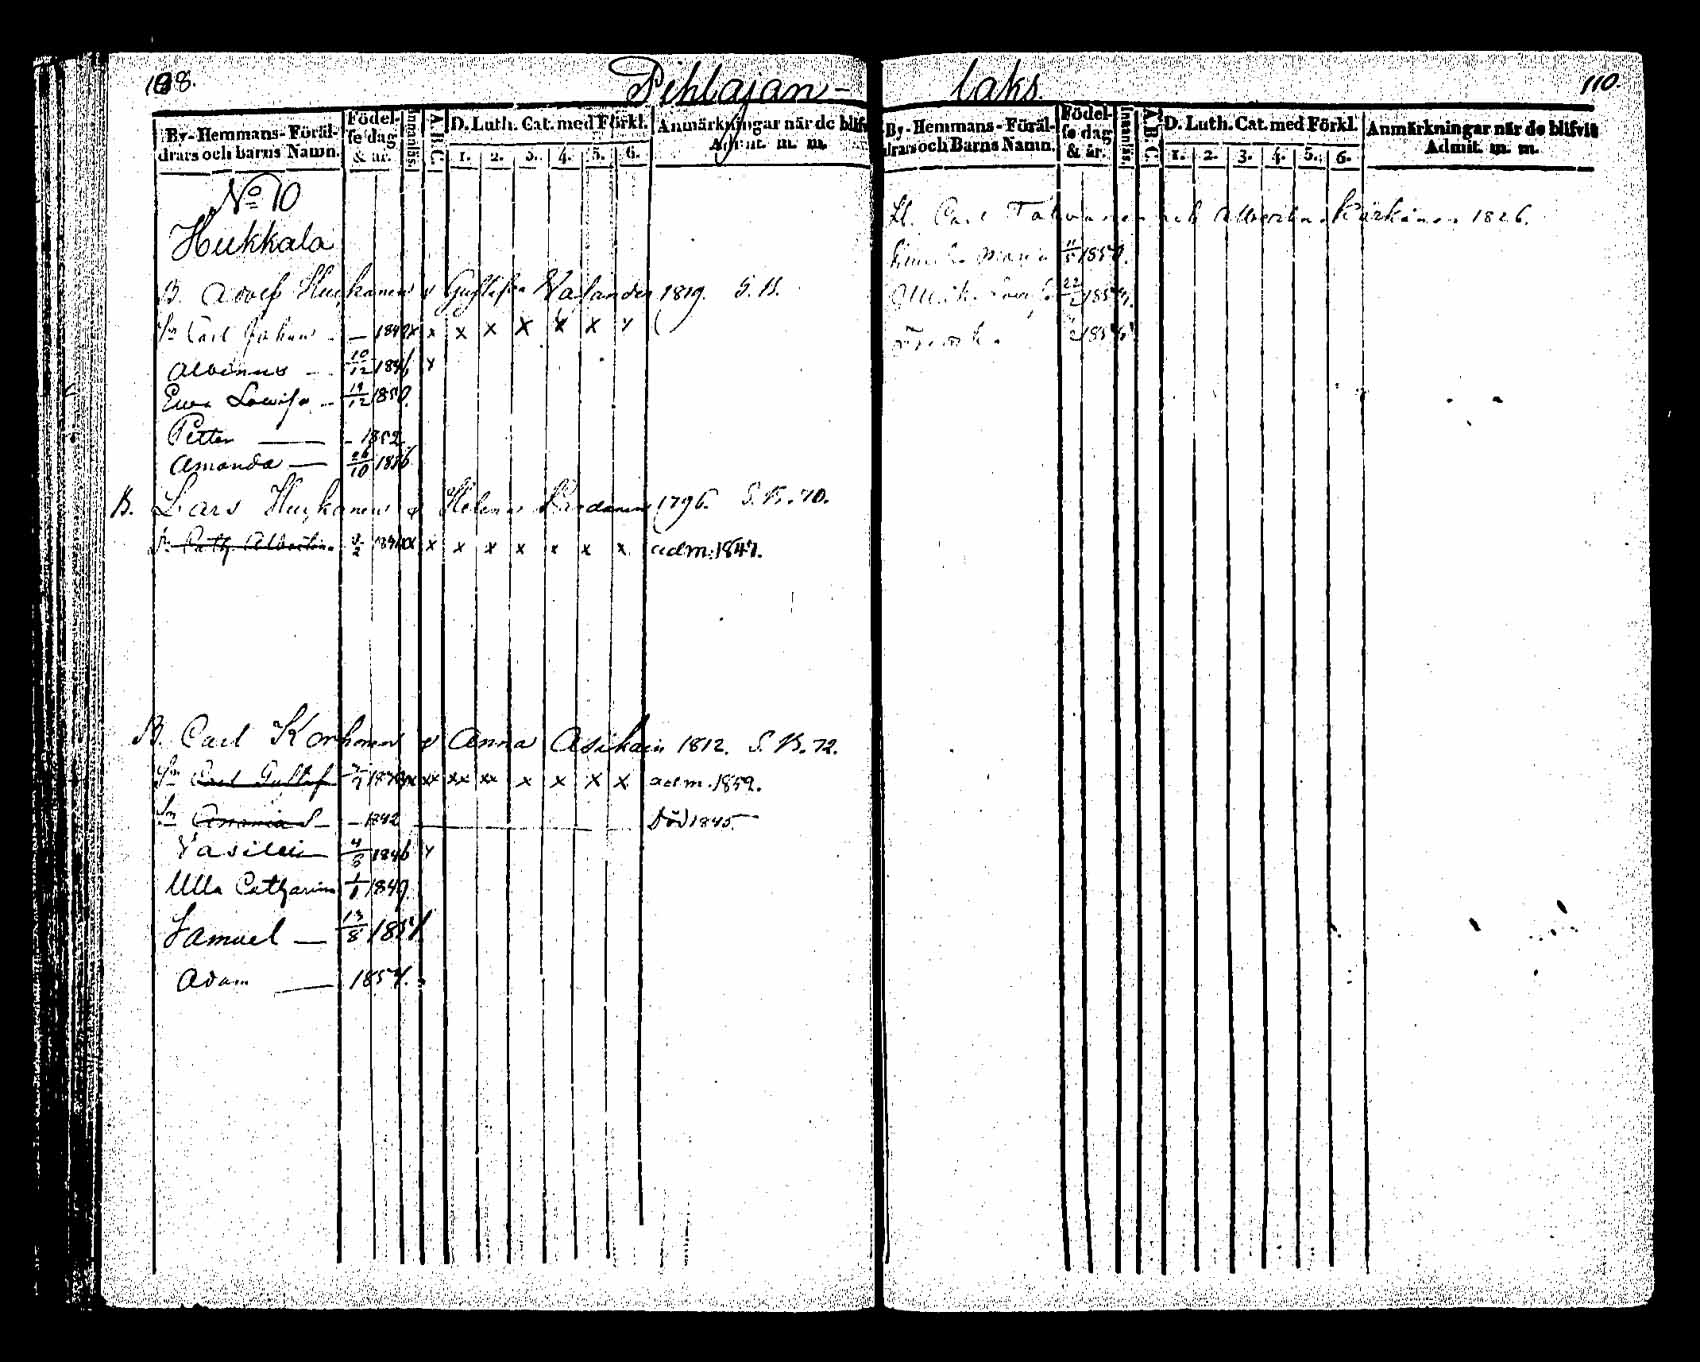 188.
Pihlajan-
By-Hemmans-Föräl-
drars och barns Namn.
Födel-
se dag
& år.
Innanläs.
A.B.C.
D. Luth. Cat. med Förkl.
1. 2. 3. 4. 5. 6.
Anmärkningar när de blifv
Admit. m. m.
No 10
Hukkala
B. Adolf Huskanen & Gustafva Valander 1819. S. B.
Sn Carl Johan - — 184 x x x x x x x x
Albinus - 10/12 1846 x
Eva Lovisa - 19/12 1850.
Petter — - 1852
Amanda — 26/10 1856
B. Lars Huskanen & Helena 1796. S. B. 70.
Cath. Albertina x x x x x x x adm. 1847.
B. Carl Korhonen & Anna Asikain 1812. S. B. 72.
Sn Carl Gustaf xx xx xx x x x x adm. 1859.
Sn — 1842 — Död 1845.
Vasilius 4/8 1846 x
Ulla Catharina 1849.
Samuel — 13/8 1851
Adam — 1854.
laks.
110.
By-Hemmans-Föräl-
drars och Barns Namn.
Födel-
se dag
& år.
Innanläs.
A.B.C
D. Luth. Cat. med Förkl.
1. 2. 3. 4. 5. 6.
Anmärkningar när de blifvit
Admit. m. m.
Carl och Albertina Kärkäinen 1826.
Maria 11/5 1850.
Ulrika Lovisa 22/2 1854.